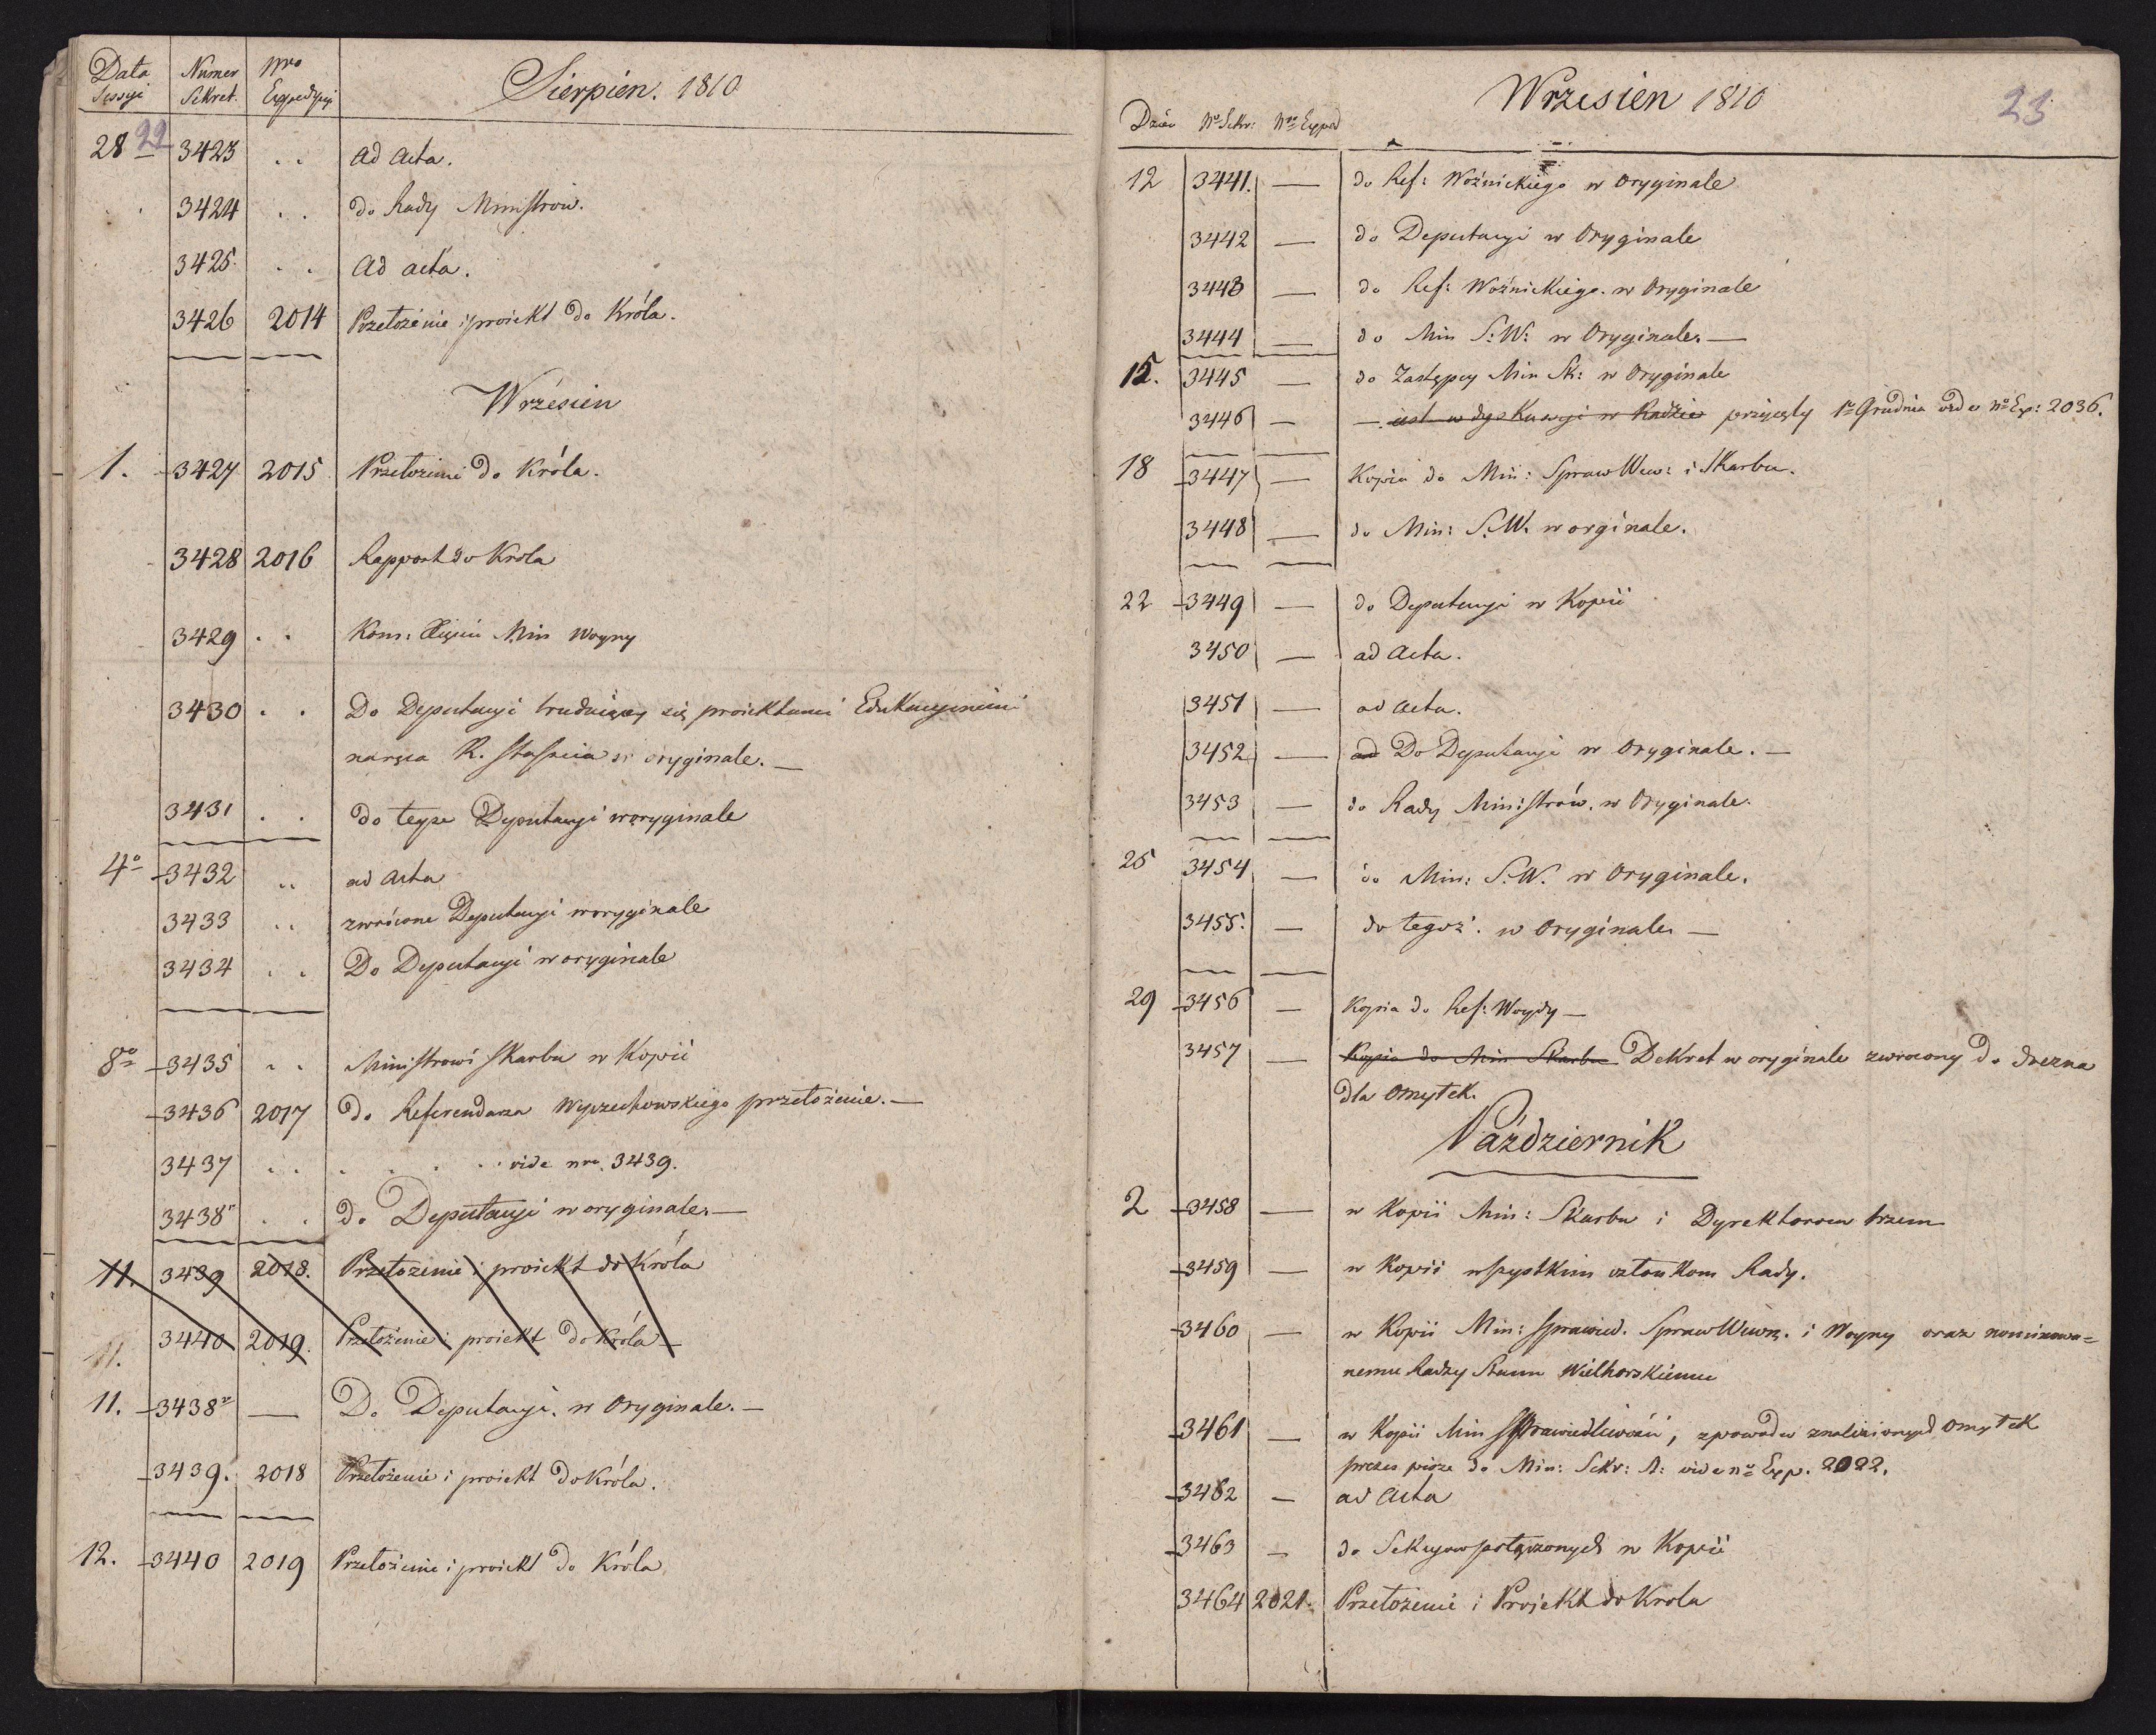 Data Sessyi Numer Sekret. Nro Expedycyi Sierpien. 1810
28 22 3423 . . ad Acta.
3424 . . do Rady Ministrow.
3425. . . Ad acta.
3426 2014 Przełożenie i proiekt do Króla.
Wrzésien
1. 3427 2015 Przełożenie do Króla.
3428 2016 Rapport do Króla
3429 . . Kom: Xięciu Min Woyny
3430 . . Do Deputacyi trudniącey się proiektami Edukacyinemi
na ręca R. Staszica w oryginale. —
3431 . . do teyże Deputacyi w oryginale
4o 3432 .. ad Acta
3433 .. zwrócone Deputacyi w oryginale
3434 . . Do Deputacyi w oryginale
8o 3435 . . Ministrowi Skarbu w Kopii
3436 2017 do Referendarza Wyczechowskiego przełożenie. —
3437 . . . . . . . vide nro. 3439.
3438 . . do Deputacyi w oryginale. —
11. 3439 2018. Przełożenie i proiekt do Króla
3440 2019. Przełożenie i proiekt do Króla —
11.
11. 3438 — Do Deputacyi. w Oryginale. —
3439. 2018 Przełożenie i proiekt do Króla.
12. 3440 2019 Przełożenie i proiekt do Króla
Wrzesien 1810 23
Dzień No Sekr: Nro Exped
12 3441. — do Ref: Woźnickiego w Oryginale
3442 — do Deputacyi w Oryginale
3443 — do Ref: Woźnickiego. w Oryginale
3444 — do Min S: W: w Oryginale. —
15. 3445 — do Zastępcy Min Sk: w Oryginale
3446 — — . iest w dyskussyi w Radzie przyięty 1o Grudnia vide No Ex: 2036.
18 3447 — Kopia do Min: Spraw Wew: i Skarbu.
3448 — do Min: S. W. w orginale.
22 3449 — do Deputacyi w Kopii
3450 — ad Acta.
3451 — ad Acta.
3452 — ad Do Deputacyi w Oryginale. —
3453 — do Rady Ministrów. w Oryginale.
25 3454 — do Min: S. W. w Oryginale.
3455. — do tegoż. w Oryginale. —
29 3456 — Kopia do Ref: Woydy —
3457 — Kopia do Min Skarbu Dekret w oryginale zwrocony do Drezna
dla omyłek.
Październik
2 3458 — w Kopii Min: Skarbu i Dyrektorom trzem
3459 — w Kopii wszystkim członkom Rady.
3460 — w Kopii Min: Sprawied. Spraw Wewn. i Woyny oraz nominowa=
nemu Radzy Stanu Wielhorskiemu
3461 — w Kopii Min Sprawiedliwości, z powodu znalezionych omyłek
prezes pisze do Min: Sekr: St: vide no Exp. 2022.
3462 — ad Acta
3463 — do Sekcyow połączonych w Kopii
3464 2021. Przełożenie i Projekt do Krola